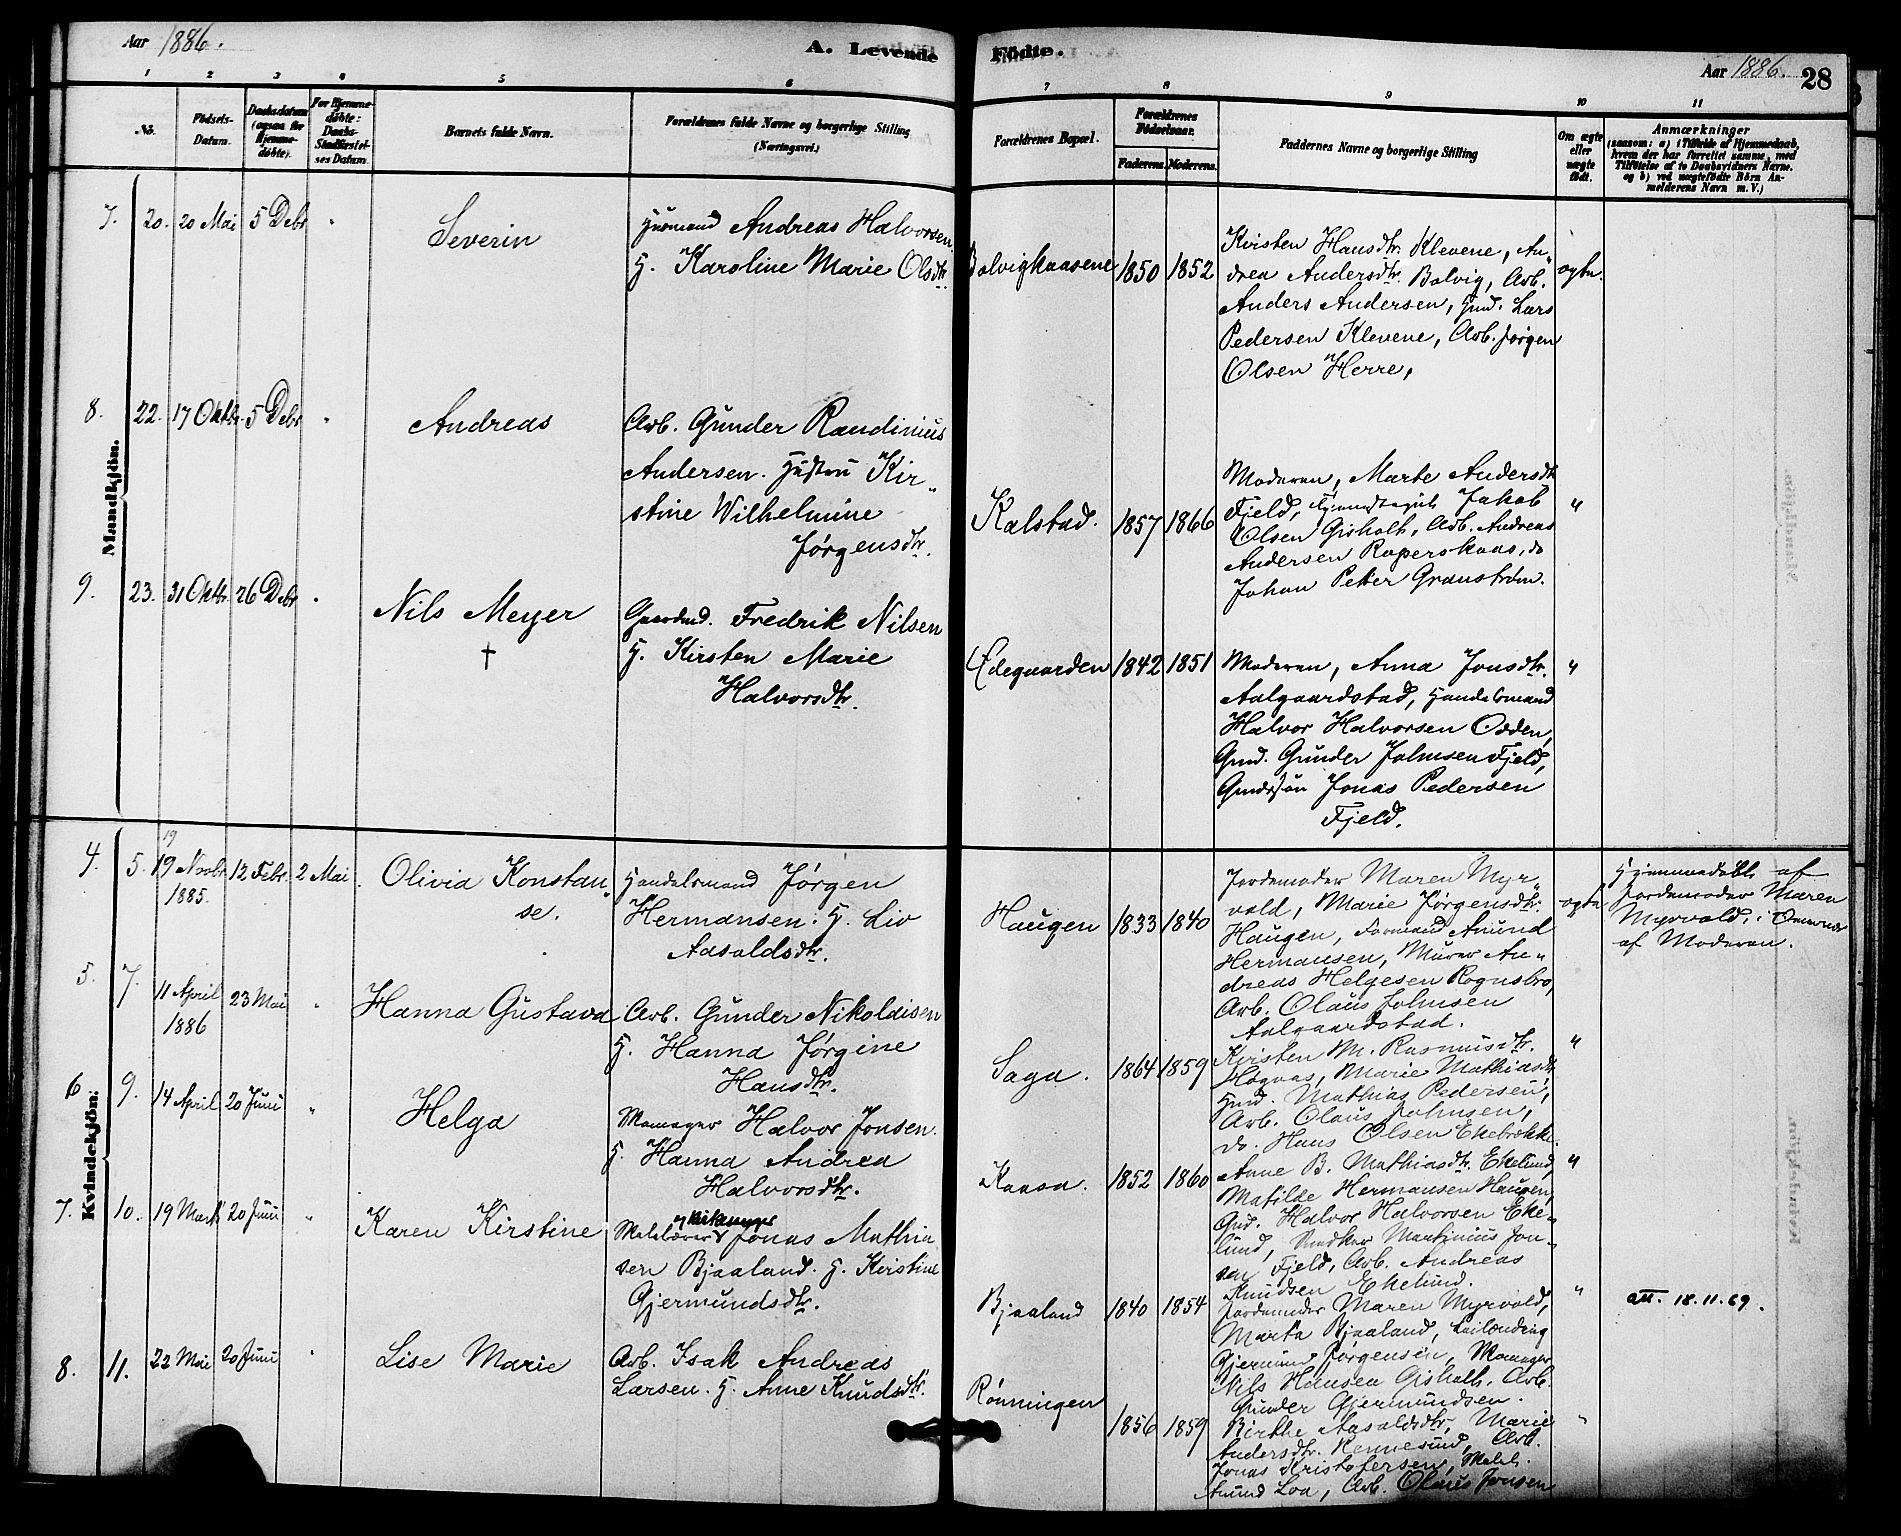 Aar 1886.
A. Levende
Födte.
Aar 1886.
28
1
2
3
4
5
6
7
8
9
10
11
No.
Födsels-
Datum.
Daabsdatum
(ogsaa for
Hjemme-
døbte).
For Hjemme-
døbte:
Daabs-
Stadfæstel-
ses Datum.
Barnets fulde Navn.
Forældrenes fulde Navne og borgerlige Stilling
(Næringsvei.)
Forældrenes Bopæl.
Forældrenes
Födselsaar.
Faderens.
Moderens.
Faddernes Navne og borgerlige Stilling
Om ægte
eller
uægte
födt.
Anmærkninger
(saasom: a) i Tilfælde af Hjemmedaab,
hvem der har forrettet samme, med
Tilföielse af to Daabsvidners Navne,
og b) ved uægtefödte Börn An-
melderens Navn m. V.)
Mandkjön.
7. 20. 20 Mai 5 Debr "
Severin
Husmand Andreas Halvorsen
H. Karoline Marie Olsdtr.
Bolvigkaasene 1850 1852
Kirsten Hansdtr. Klevene, An-
drea Andersdtr. Bolvig, Arb.
Anders Andersen, Hmd. Lars
Pedersen Klevene, Arb. Jørgen
Olsen Herre,
ægte.
8. 22. 17 Oktbr. 5 Debr "
Andreas
Arb. Gunder Randinius
Andersen. Hustru Kir-
stine Wilhelmine
Jørgensdtr.
Kalstad. 1857 1866
Moderen, Marte Andersdtr
Fjeld, Jakob
Olsen Gisholt, Arb. Andreas
Andersen Raperskaas, do
Johan Petter Granström.
"
9. 23. 31 Oktbr. 26 Debr "
Nils Meyer
†
Gaardmd. Fredrik Nilsen
H. Kirsten Marie
Halvorsdtr.
Ødegaarden 1842 1851
Moderen, Anna Jonsdtr.
Aalgaardstad, Handelsmand
Halvor Halvorsen Odden,
Gmd. Gunder Johnsen Fjeld,
Gmdssøn Jonas Pedersen
Fjeld.
"
Kvindekjön.
4. 5. 19 Novbr 12 Febr. 2 Mai
19
1885.
Olivia Konstan-
se.
Handelsmand Jørgen
Hermansen. H. Liv
Aasoldsdtr.
Haugen 1833 1840
Jordemoder Maren Myr-
vold, Marie Jørgensdtr.
Haugen, Formand Amund
Hermansen, Murer An-
dreas Helgesen Rognsbro,
Arb. Olaus Johnsen
Aalgaardstad.
ægte
Hjemmedøbt af
Jordemoder Maren
Myrvold, i Nærvær
af Moderen.
5. 7. 11 April 23 Mai "
1886
Hanna Gustava
Arb. Gunder Nikolaisen
H. Hanna Jørgine
Hansdtr.
Saga. 1864 1859
Kirsten M. Rasmusdtr.
Høgvas, Marie Mathiasdtr
Hmd. Mathias Pedersen,
Arb. Olaus Johnsen,
do. Hans Olsen Ekebrække.
"
6 9. 14 April 20 Juni "
Helga
Mamager Halvor Jonsen.
H. Hanna Andrea
Halvorsdtr.
Kaasa. 1852 1860
Anne B. Mathiasdtr. Ekelund,
Matilde Hermansen Haugen,
Gmd. Halvor Halvorsen Eke-
lund, Snedker Martinius Jon-
sen Fjeld, Arb. Andreas
Knudsen Ekelund.
"
7. 10. 19 Marts 20 Juni "
Karen Kirstine
Jonas Mathia
sen Bjaaland. H. Kirstine
Gjermundsdtr.
Bjaaland 1840 1854
Jordemoder Maren Myrvold,
Marta Bjaaland, Leilænding
Gjermund Jørgensen, Mamager
Nils Hansen Gisholt, Arb.
Gunder Gjermundsen.
"
att. 18.11.69.
8. 11. 22 Mai 20 Juni "
Lise Marie
Arb. Isak Andreas
Larsen. H. Anne Knudsdtr.
Rønningen 1856 1859
Birthe Aasoldsdtr, Marie
Andersdtr. Rennesund, Arb.
Jonas Kristofersen, Matr.
Amund Loa, Arb. Olaus Jonsen
"